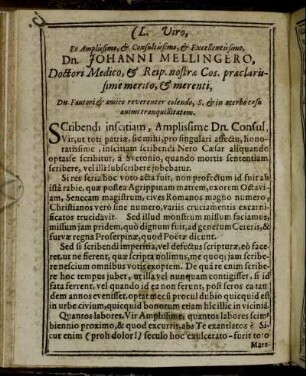 (L. Viro,
Et Amplissimo, & Consultissimo, & Excellentissimo,
Dn. JOHANNI MELLINGERO,
Doctori Medico, & Reip. nostræ Cos. præclaris-
simè merito, & merenti,
Dn. Fautori & amico reverenter colendo, S. & in acerbo casu
animi tranquillitatem.
SCribendi inscitiam, Amplissime Dn. Consul,
Vir, ut toti patriæ, sic mihi, pro singulari affectu, hono-
ratissime, inscitiam scribendi Nero Cæsar aliquando
optasse scribitur, à Svetonio, quando mortis sententiam
scribere, vel illi subscribere jubebatur.
Si res seria hoc voto acta fuit, non profectum id fuit ab
istâ rabie, quæ postea Agrippinam matrem, uxorem Octavi
am, Senecam magistrum, cives Romanos magno numero,
Christianos verò sine numero, variis cruciamentis excarni-
ficatos trucidavit. Sed illud monstrum missum faciamus,
missum jam pridem, quò dignum fuit, ad generum Cereris, &
furvæ regna Proserpinæ, quod Poëtæ dicunt.
Sed si scribendi imperitia, vel defectus scripturæ, eò face-
ret, ut ne fierent, quæ scripta nolimus, me quoq; jam scribe-
re nescium omnibus votis exoptem. De quâ re enim scribe-
re hoc tempus jubet, ut illa vel nunquam contigisset, si id
fata ferrent, vel quando id ea non ferunt, post seros ea tan-
dem annos evenisset, optat mecũ procul dubio quicquid est
in urbe civium, quicquid bonorum etiam hîc illic in vicinia
Quantos labores, Vir Amplissime, quantos labores scim9
biennio proximo, & quod excurrit, abs Te exantlatos? Si-
cut enim (proh dolor!) seculo hoc exulcerato-furit toto
Mars